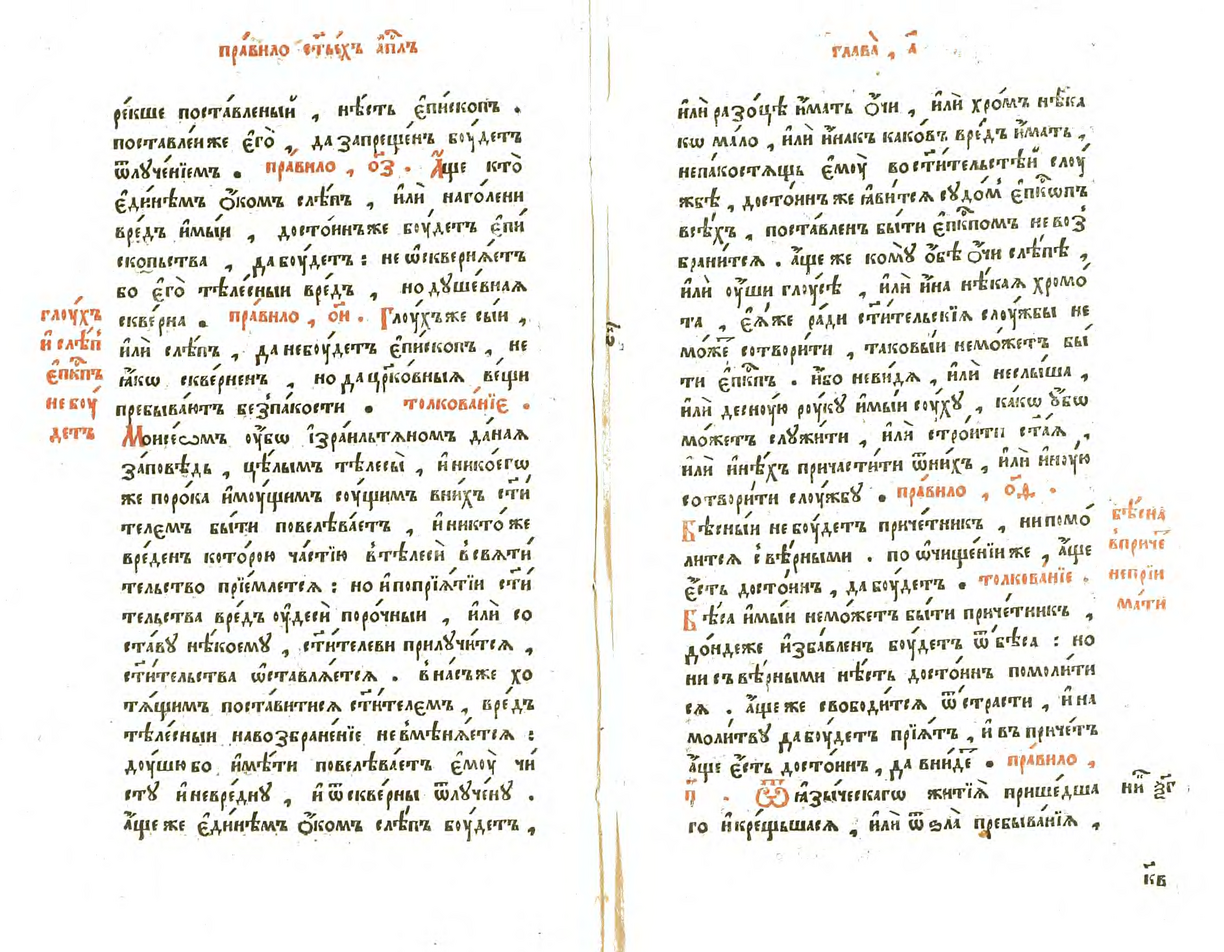 пра́вило ст҃ы́хъ а҆п҃лъ
ре́кше поста́вленый , нѣ́сть є҆пи́скопъ .
поставле́и же є҆го̀ , да запреще́нъ бꙋ́детъ
ѿлꙋче́нїемъ . пра́вило , о҃з . А҆́ще кто̀
є҆ди́нѣмъ о҆́комъ слѣ́пъ , и҆лѝ наго́лени
вре́дъ и҆мы́и , досто́инъ же бꙋ́детъ є҆пи
скопьства , да бꙋ́детъ : не ѡ҆скверня́етъ
бо є҆го̀ тѣле́сныи вре́дъ , но дꙋше́вная
скве́рна . пра́вило , о҃и . Глоу́хъ же сы́и ,
и҆лѝ слѣ́пъ , да небꙋ́детъ є҆пи́скопъ , не
ꙗ҆́кѡ скве́рненъ , но да цр҃ко́вныѧ ве́щи
пребыва́ютъ безпа́кости . толкова́нїє .
Моисе́ѡмъ оу҆́бѡ і҆зраи́льтѧномъ да́наѧ
за́повѣдь , цѣ́лымъ тѣлесы̀ , и҆ нико́егѡ
же поро́ка и҆мꙋ́щимъ сꙋ́щимъ вни́хъ ст҃и́
телємъ бы́ти повелѣва́етъ , и҆ никто́ же
вре́денъ кото́рою ча́стїю в тѣлесѝ в свѧти́
тельство прїе́млетсѧ : но и҆ попрїѧ́тїи ст҃и́
тельства вре́дъ оу҆десѝ поро́чныи , и҆лѝ со
ста́вꙋ нѣ́коемꙋ , ст҃и́телеви прилꙋчи́тсѧ ,
ст҃и́тельства ѡ҆ставлѧ́етсѧ . в на́съ же хо
тѧ́щимъ поста́витисѧ ст҃и́телємъ , вре́дъ
тѣле́сныи навозбране́нїе невмѣнѧ́етсѧ :
дꙋ́шю бо и҆мѣ́ти повелѣва́етъ є҆мꙋ̀ чи́
стꙋ и҆ невре́днꙋ , и҆ ѿскве́рны ѿлꙋ́ченꙋ .
а҆́ще же є҆ди́нѣмъ о҆́комъ слѣ́пъ бꙋ́детъ ,
глоу́хъ
и҆ слѣ́п
є҆п҃кпъ
не бꙋ́
детъ
глава̀ , а҃
и҆лѝ разо́цѣ и҆́мать о҆́чи , и҆лѝ хро́мъ нѣ́ка
кѡ ма́ло , и҆лѝ и҆на́къ како́въ вре́дъ и҆́мать ,
непа́костѧщь є҆мꙋ̀ во ст҃и́тельстѣи слꙋ́
жбѣ , досто́инъ же ꙗ҆ви́тсѧ сꙋдо́м є҆п҃кѡпъ
всѣ́хъ , поста́вленъ бы́ти є҆п҃кпом невоз
брани́тсѧ . а҆́ще же комꙋ̀ о҆́бѣ о҆́чи слѣ́пѣ ,
и҆лѝ оу҆́ши глꙋ́сѣ , и҆лѝ и҆на нѣ́каѧ хромо
та̀ , є҆ѧ́же ра́ди ст҃и́тельскїѧ слꙋ́жбы не
мо́же сотвори́ти , таковы́и немо́жетъ бы́
ти є҆п҃кпъ . и҆́бо неви́дѧ , и҆лѝ неслы́ша ,
и҆лѝ деснꙋ́ю рꙋ́кꙋ и҆мы́и сꙋ́хꙋ , ка́кѡ оу҆́бѡ
мо́жетъ слꙋжи́ти , и҆лѝ стро́ити ст҃а́ѧ ,
и҆лѝ и҆нѣ́хъ причасти́ти ѿни́хъ , и҆лѝ и҆нꙋ́ю
сотвори́ти слꙋ́жбꙋ . пра́вило , о҃ѳ .
Бѣ́сныи не бꙋ́детъ приче́тникъ , ни помо́
литсѧ с вѣ́рными . по ѡ҆чище́нїи же , а҆́ще
є҆́сть досто́инъ , да бꙋ́детъ . толкова́нїе .
Бѣ́са и҆мы́и немо́жетъ бы́ти приче́тникъ ,
до́ндеже и҆зба́вленъ бꙋ́детъ ѿ бѣ́са : но
ни съ вѣ́рными нѣ́сть досто́инъ помоли́ти
сѧ . а҆́ще же свободи́тсѧ ѿ стра́сти , и҆ на
моли́твꙋ да бꙋ́детъ прїѧ́тъ , и҆ в приче́тъ
а҆́ще є҆́сть досто́инъ , да вни́де . пра́вило ,
п҃ . Ѿ ꙗ҆зы́ческагѡ житїѧ̀ прише́дша
го и҆ кре́щьшаѧсѧ , и҆лѝ ѿ ѕла̀ пребыва́нїѧ ,
бѣ́сна
в приче́
не прїи
ма́ти
кв҃